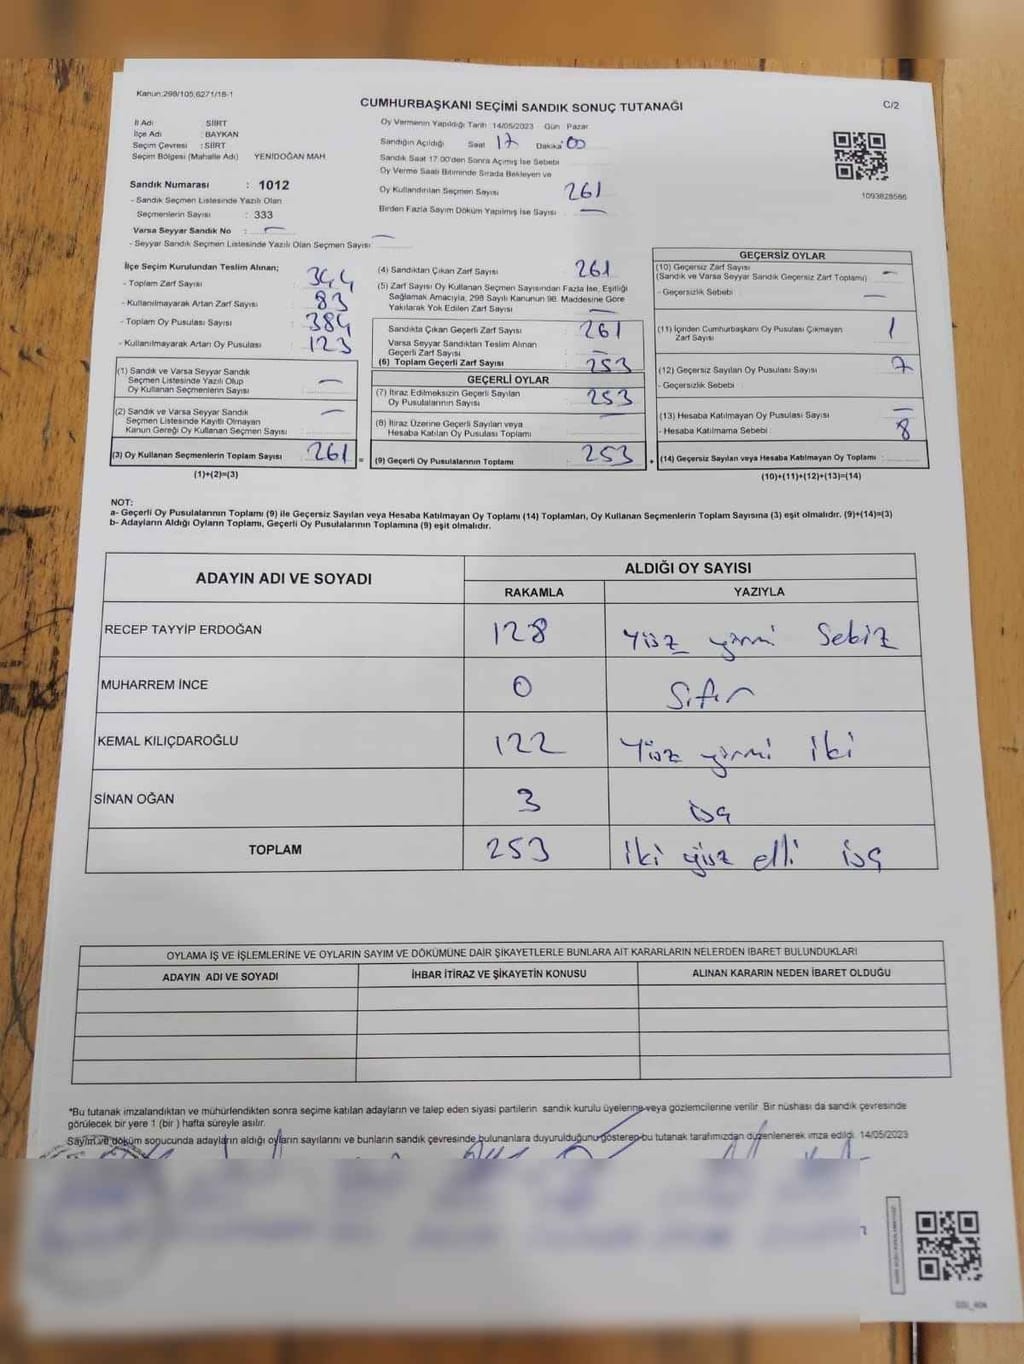 Kanun:298/105,6271/18-1
CUMHURBAŞKANI SEÇİMİ SANDIK SONUÇ TUTANAĞI
C/2
İl Adı : SİİRT
İlçe Adı : BAYKAN
Seçim Çevresi : SİİRT
Seçim Bölgesi (Mahalle Adı) YENİDOĞAN MAH
Sandık Numarası : 1012
- Sandık Seçmen Listesinde Yazılı Olan
Seçmenlerin Sayısı : 333
Varsa Seyyar Sandık No : —
- Seyyar Sandık Seçmen Listesinde Yazılı Olan Seçmen Sayısı : —
Oy Vermenin Yapıldığı Tarih 14/05/2023 Gün Pazar
Sandığın Açıldığı Saat 17 Dakika 00
Sandık Saat 17.00'den Sonra Açılmış İse Sebebi
Oy Verme Saati Bitiminde Sırada Bekleyen ve
Oy Kullandırılan Seçmen Sayısı 261
Birden Fazla Sayım Döküm Yapılmış İse Sayısı —
1093828586
İlçe Seçim Kurulundan Teslim Alınan;
- Toplam Zarf Sayısı : 344
- Kullanılmayarak Artan Zarf Sayısı : 83
- Toplam Oy Pusulası Sayısı : 384
- Kullanılmayarak Artan Oy Pusulası : 123
(1) Sandık ve Varsa Seyyar Sandık
Seçmen Listesinde Yazılı Olup
Oy Kullanan Seçmenlerin Sayısı : —
(2) Sandık ve Varsa Seyyar Sandık
Seçmen Listesinde Kayıtlı Olmayan
Kanun Gereği Oy Kullanan Seçmen Sayısı : —
(3) Oy Kullanan Seçmenlerin Toplam Sayısı : 261
(1)+(2)=(3)
(4) Sandıktan Çıkan Zarf Sayısı 261
(5) Zarf Sayısı Oy Kullanan Seçmen Sayısından Fazla İse, Eşitliği
Sağlamak Amacıyla, 298 Sayılı Kanunun 98. Maddesine Göre
Yakılarak Yok Edilen Zarf Sayısı : —
Sandıkta Çıkan Geçerli Zarf Sayısı : 261
Varsa Seyyar Sandıktan Teslim Alınan
Geçerli Zarf Sayısı : —
(6) Toplam Geçerli Zarf Sayısı : 253
GEÇERLİ OYLAR
(7) İtiraz Edilmeksizin Geçerli Sayılan
Oy Pusulalarının Sayısı : 253
(8) İtiraz Üzerine Geçerli Sayılan veya
Hesaba Katılan Oy Pusulası Toplamı : —
= (9) Geçerli Oy Pusulalarının Toplamı : 253
GEÇERSİZ OYLAR
(10) Geçersiz Zarf Sayısı
(Sandık ve Varsa Seyyar Sandık Geçersiz Zarf Toplamı) : —
- Geçersizlik Sebebi : —
(11) İçinden Cumhurbaşkanı Oy Pusulası Çıkmayan
Zarf Sayısı : 1
(12) Geçersiz Sayılan Oy Pusulası Sayısı : 7
- Geçersizlik Sebebi :
(13) Hesaba Katılmayan Oy Pusulası Sayısı : —
- Hesaba Katılmama Sebebi : 8
+ (14) Geçersiz Sayılan veya Hesaba Katılmayan Oy Toplamı :
(10)+(11)+(12)+(13)=(14)
NOT:
a- Geçerli Oy Pusulalarının Toplamı (9) ile Geçersiz Sayılan veya Hesaba Katılmayan Oy Toplamı (14) Toplamları, Oy Kullanan Seçmenlerin Toplam Sayısına (3) eşit olmalıdır. (9)+(14)=(3)
b- Adayların Aldığı Oyların Toplamı, Geçerli Oy Pusulalarının Toplamına (9) eşit olmalıdır.
ADAYIN ADI VE SOYADI ALDIĞI OY SAYISI
RAKAMLA YAZIYLA
RECEP TAYYİP ERDOĞAN 128 Yüz yirmi Sekiz
MUHARREM İNCE 0 Sıfır
KEMAL KILIÇDAROĞLU 122 Yüz yirmi iki
SİNAN OĞAN 3 üç
TOPLAM 253 iki yüz elli üç
OYLAMA İŞ VE İŞLEMLERİNE VE OYLARIN SAYIM VE DÖKÜMÜNE DAİR ŞİKAYETLERLE BUNLARA AİT KARARLARIN NELERDEN İBARET BULUNDUKLARI
ADAYIN ADI VE SOYADI İHBAR İTİRAZ VE ŞİKAYETİN KONUSU ALINAN KARARIN NEDEN İBARET OLDUĞU
*Bu tutanak imzalandıktan ve mühürlendikten sonra seçime katılan adayların ve talep eden siyasi partilerin sandık kurulu üyelerine veya gözlemcilerine verilir. Bir nüshası da sandık çevresinde
görülecek bir yere 1 (bir ) hafta süreyle asılır.
Sayım ve döküm sonucunda adayların aldığı oyların sayılarını ve bunların sandık çevresinde bulunanlara duyurulduğunu gösteren bu tutanak tarafımızdan düzenlenerek imza edildi. 14/05/2023